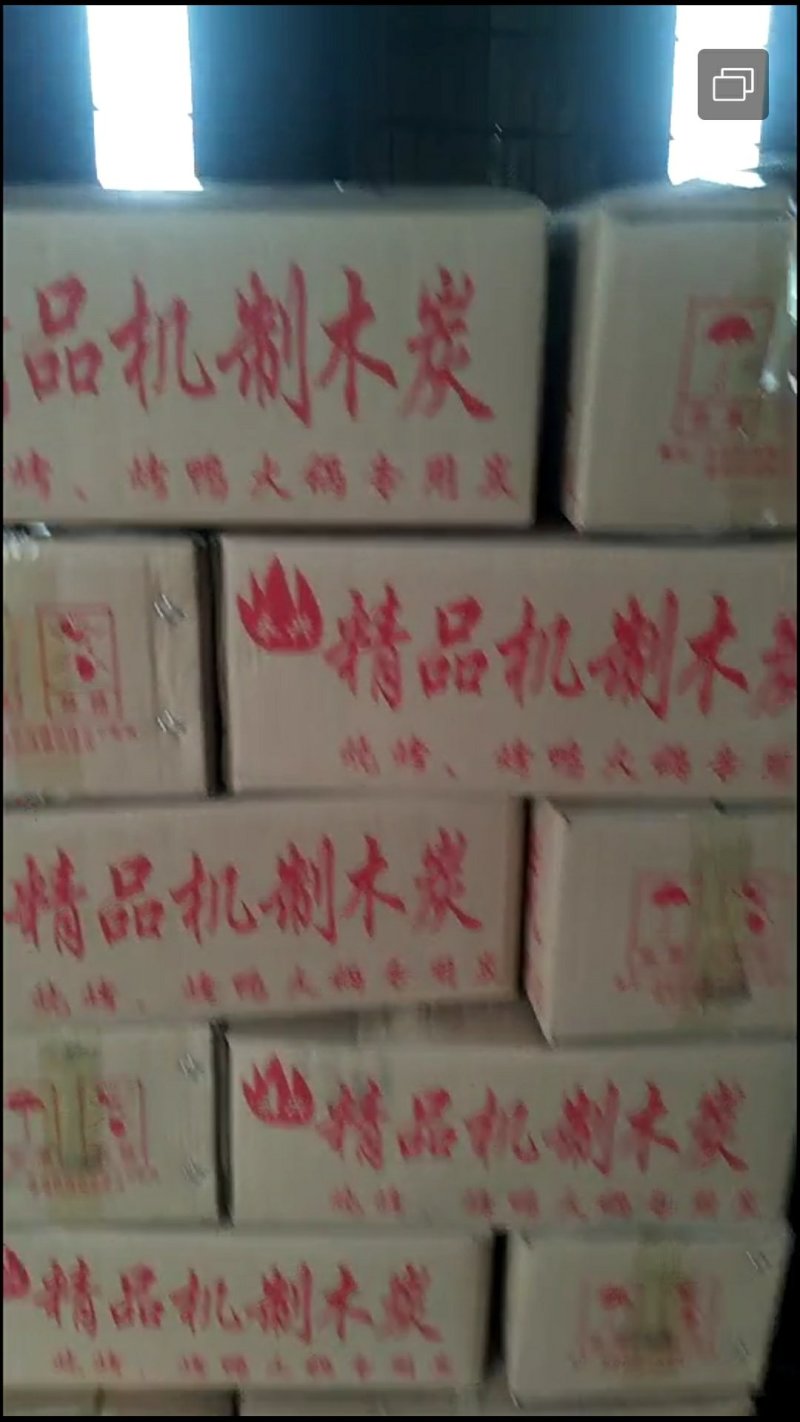 品机制木炭
烤、烤鸭火锅专用炭
精品机制木炭
烧烤、烤鸭火锅专用
精品机制木炭
烧烤、烤鸭火锅专用炭
精品机制木炭
烧烤 烤鸭火锅专用炭
精品机制木炭
烧烤、烤鸭火锅专用炭